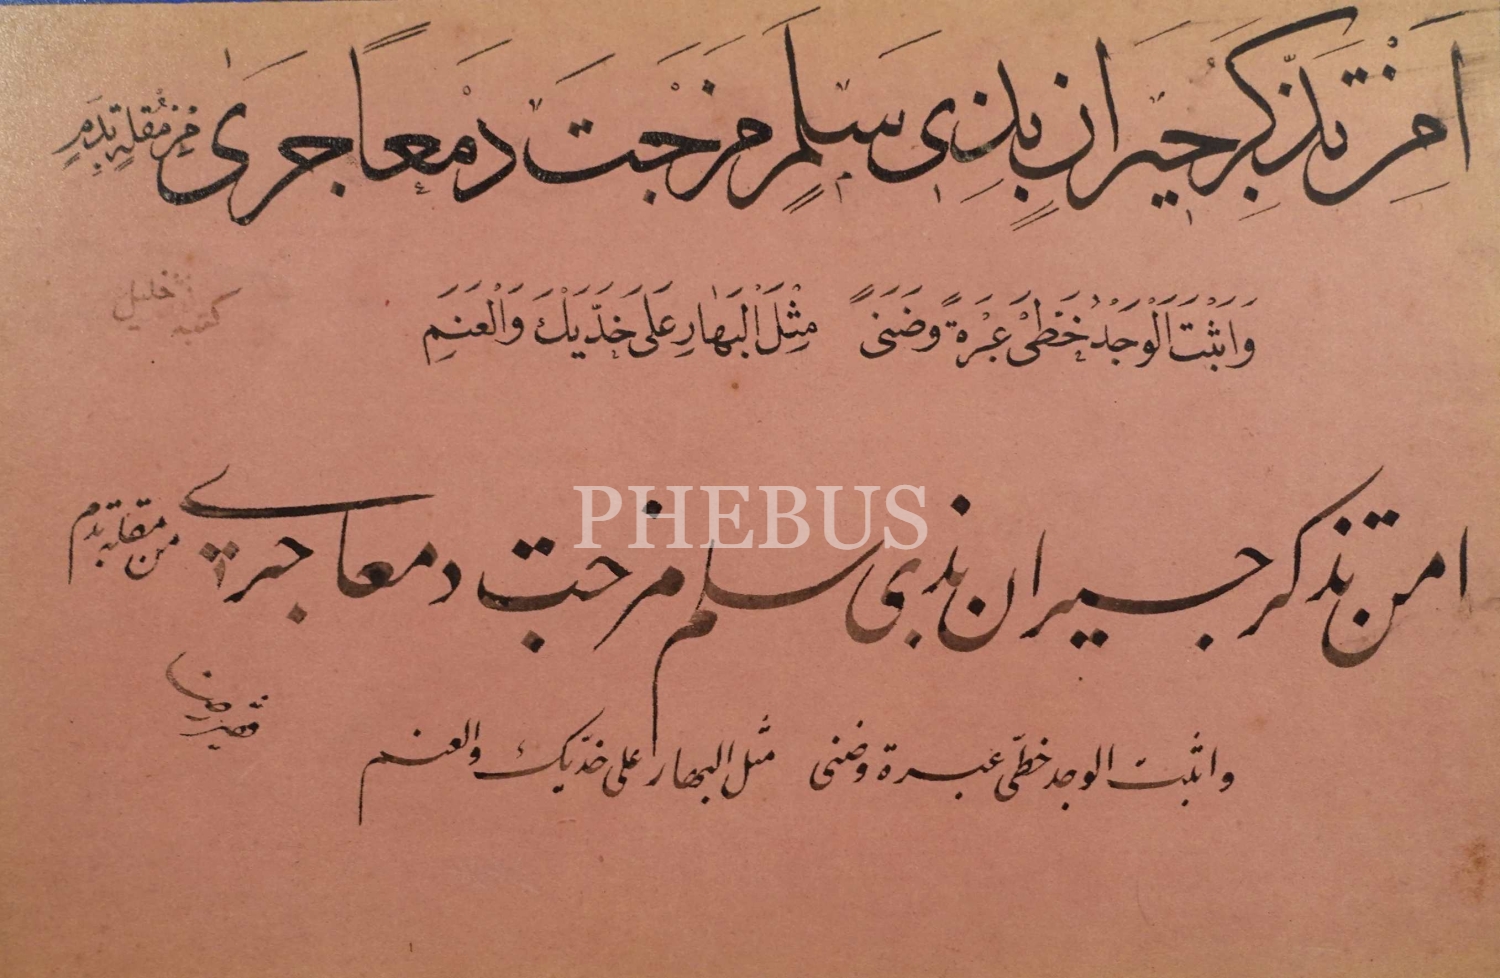 اَمِنْ تَذَكُّرِ جِيرَانٍ بِذِي سَلَمٍ مَزَجْتَ دَمْعًا جَرٰى مِنْ مُقْلَةٍ بِدَمِ
وَاَثْبَتَ الْوَجْدُ خَطَّىْ عَبْرَةٍ وَضَنًى مِثْلَ الْبَهَارِ عَلَى خَدَّيْكَ وَالْعَنَمِ
كتبه خليل
PHEBUS
امن تذكر جيران بذي سلم مزجت دمعا جرى من مقلة بدم
واثبت الوجد خطّى عبرة وضنى مثل البهار على خدّيك والعنم